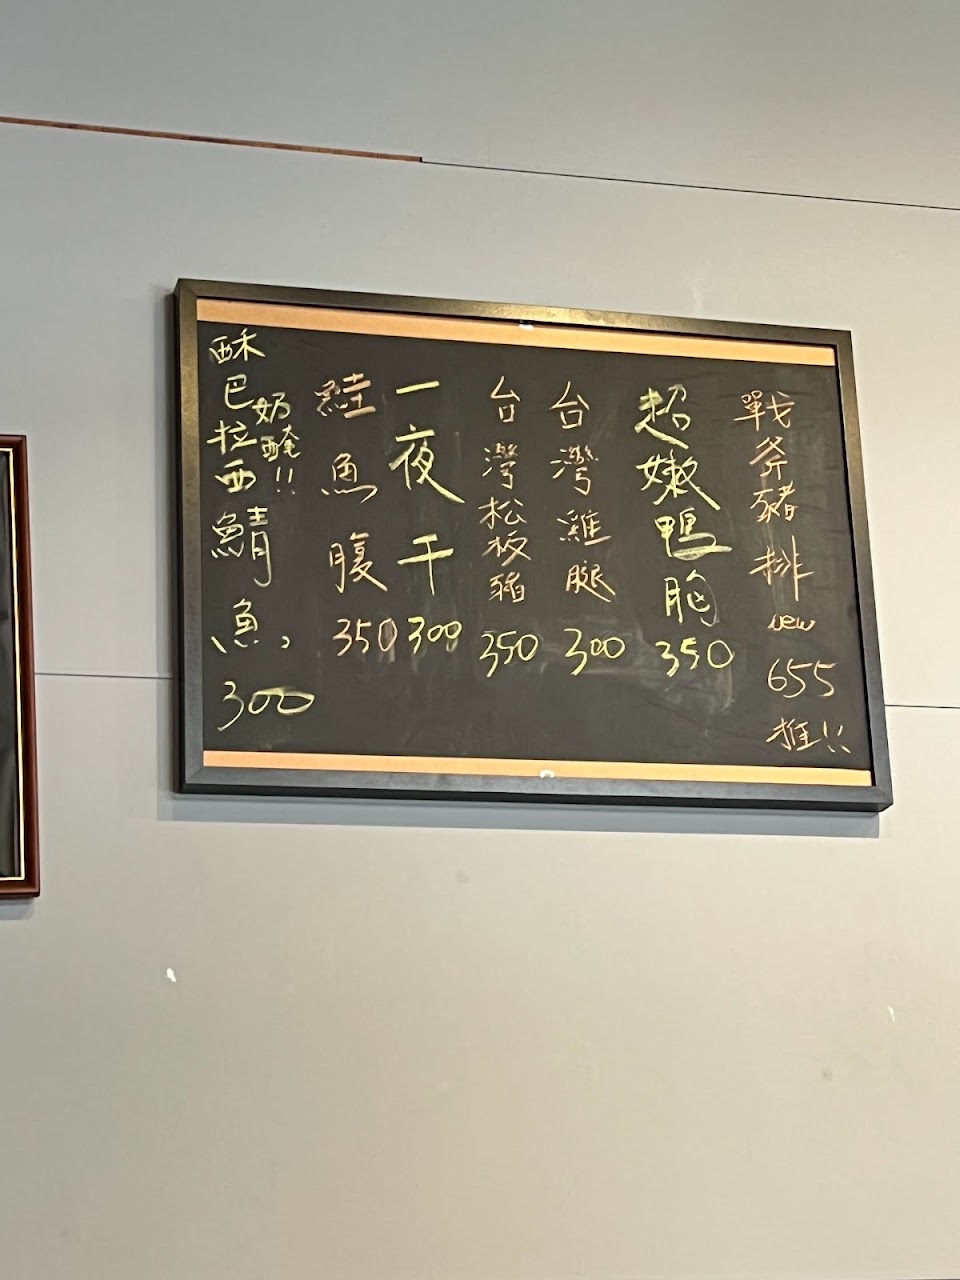 戰斧豬排 new 655 推!!
超嫩鴨胸 350
台灣雞腿 300
台灣松板豬 350
一夜干 300
鮭魚腹 350
奶醃!!
酥巴拉西鯖魚 300